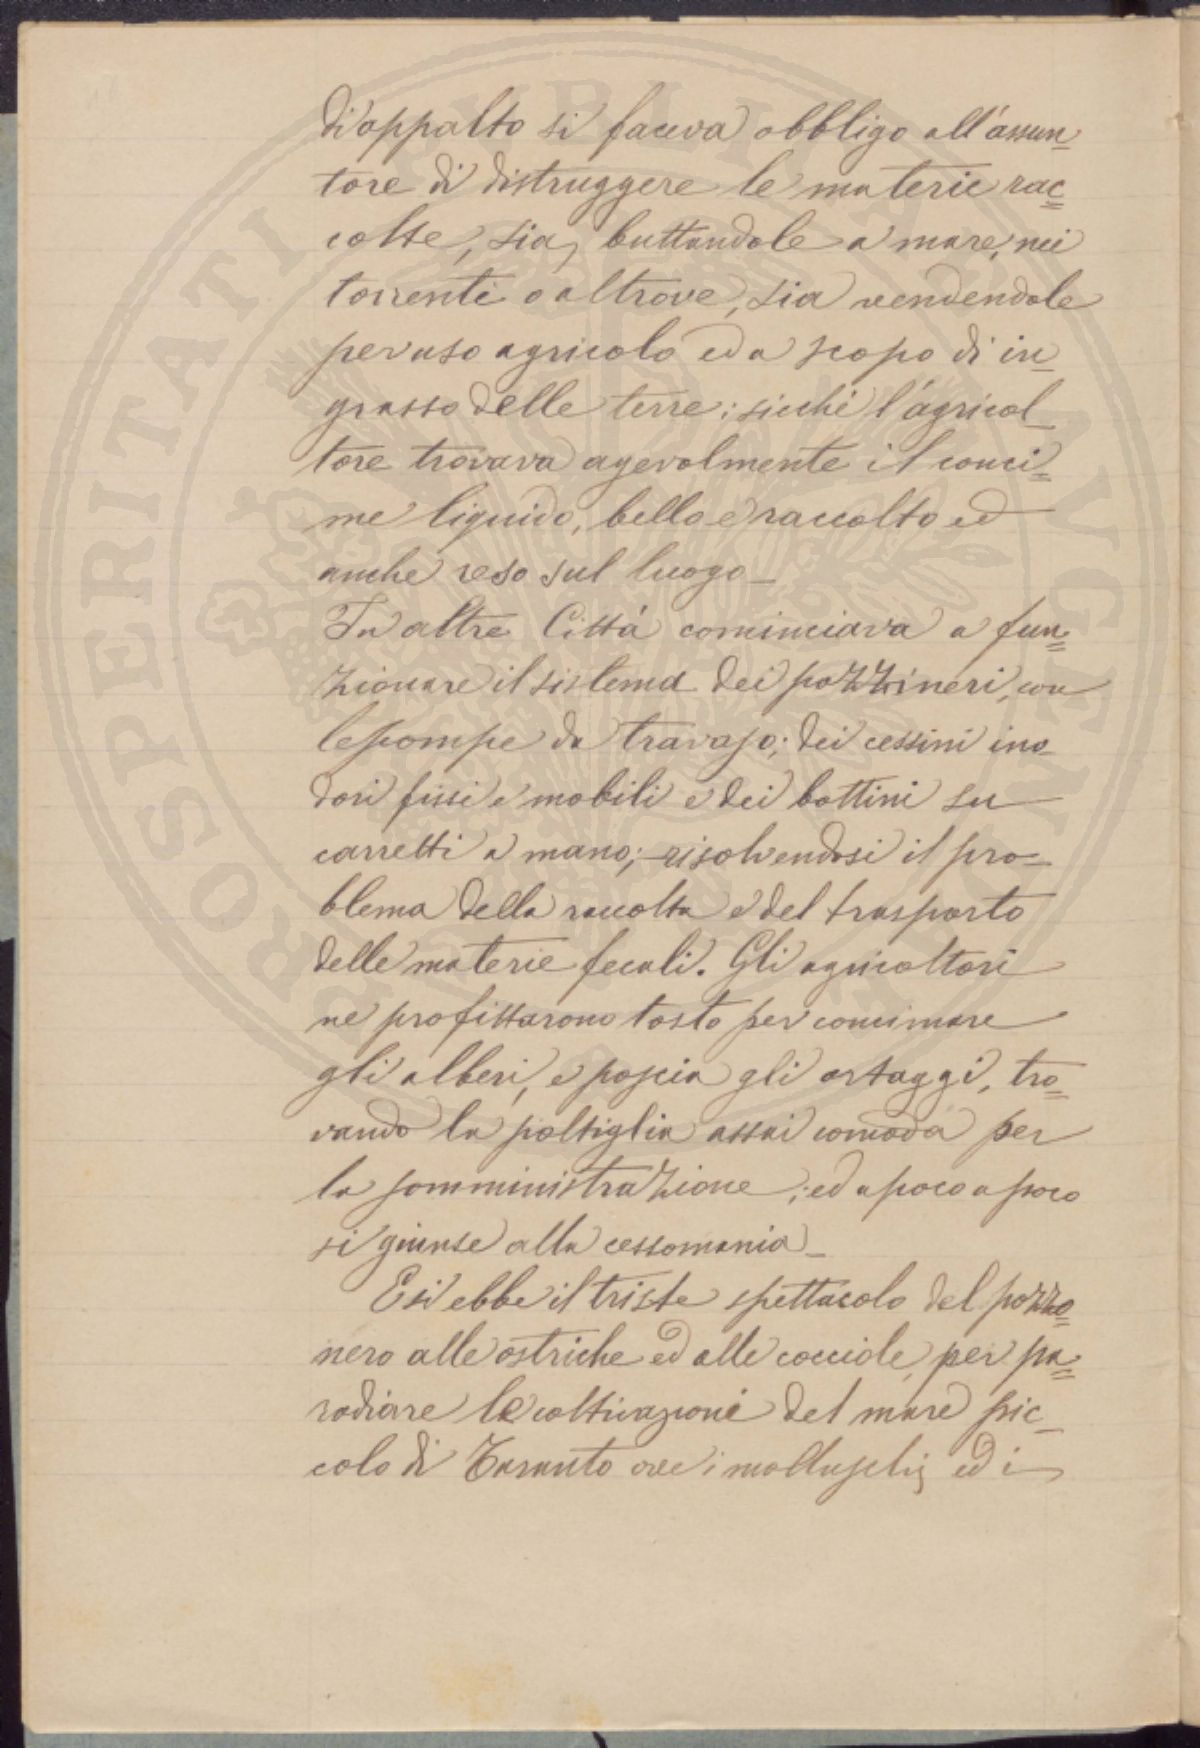 di appalto si faceva obbligo all'assun=
tore di distruggere le materie rac=
colte, sia, buttandole a mare, nei
torrenti o altrove, sia vendendole
per uso agricolo ed a scopo di in=
grasso delle terre; sicché l'agricol_
tore trovava agevolmente il conci=
me liquido, bello e raccolto ed
anche reso sul luogo_
In altre Cittá cominciava a fun=
zionare il sistema dei pozzi neri, con
le pompe da travaso; dei cessini ino_
dori fissi e mobili e dei bottini su
carretti a mano; risolvendosi il pro=
blema della raccolta e del trasporto
delle materie fecali. Gli agricoltori
ne profittarono tosto per concimare
gli alberi, e poscia gli ortaggi, tro=
vando la poltiglia assai comoda per
la somministrazione; ed a poco a poco
si giunse alla cessomania_
E si ebbe il triste spettacolo del pozzo=
nero alle ostriche ed alle cocciole, per pa=
rodiare le coltivazioni del mare pic_
colo di Taranto ove i molluschi, ed i
PROSPERITATI PVBLICAE AVGENDAE